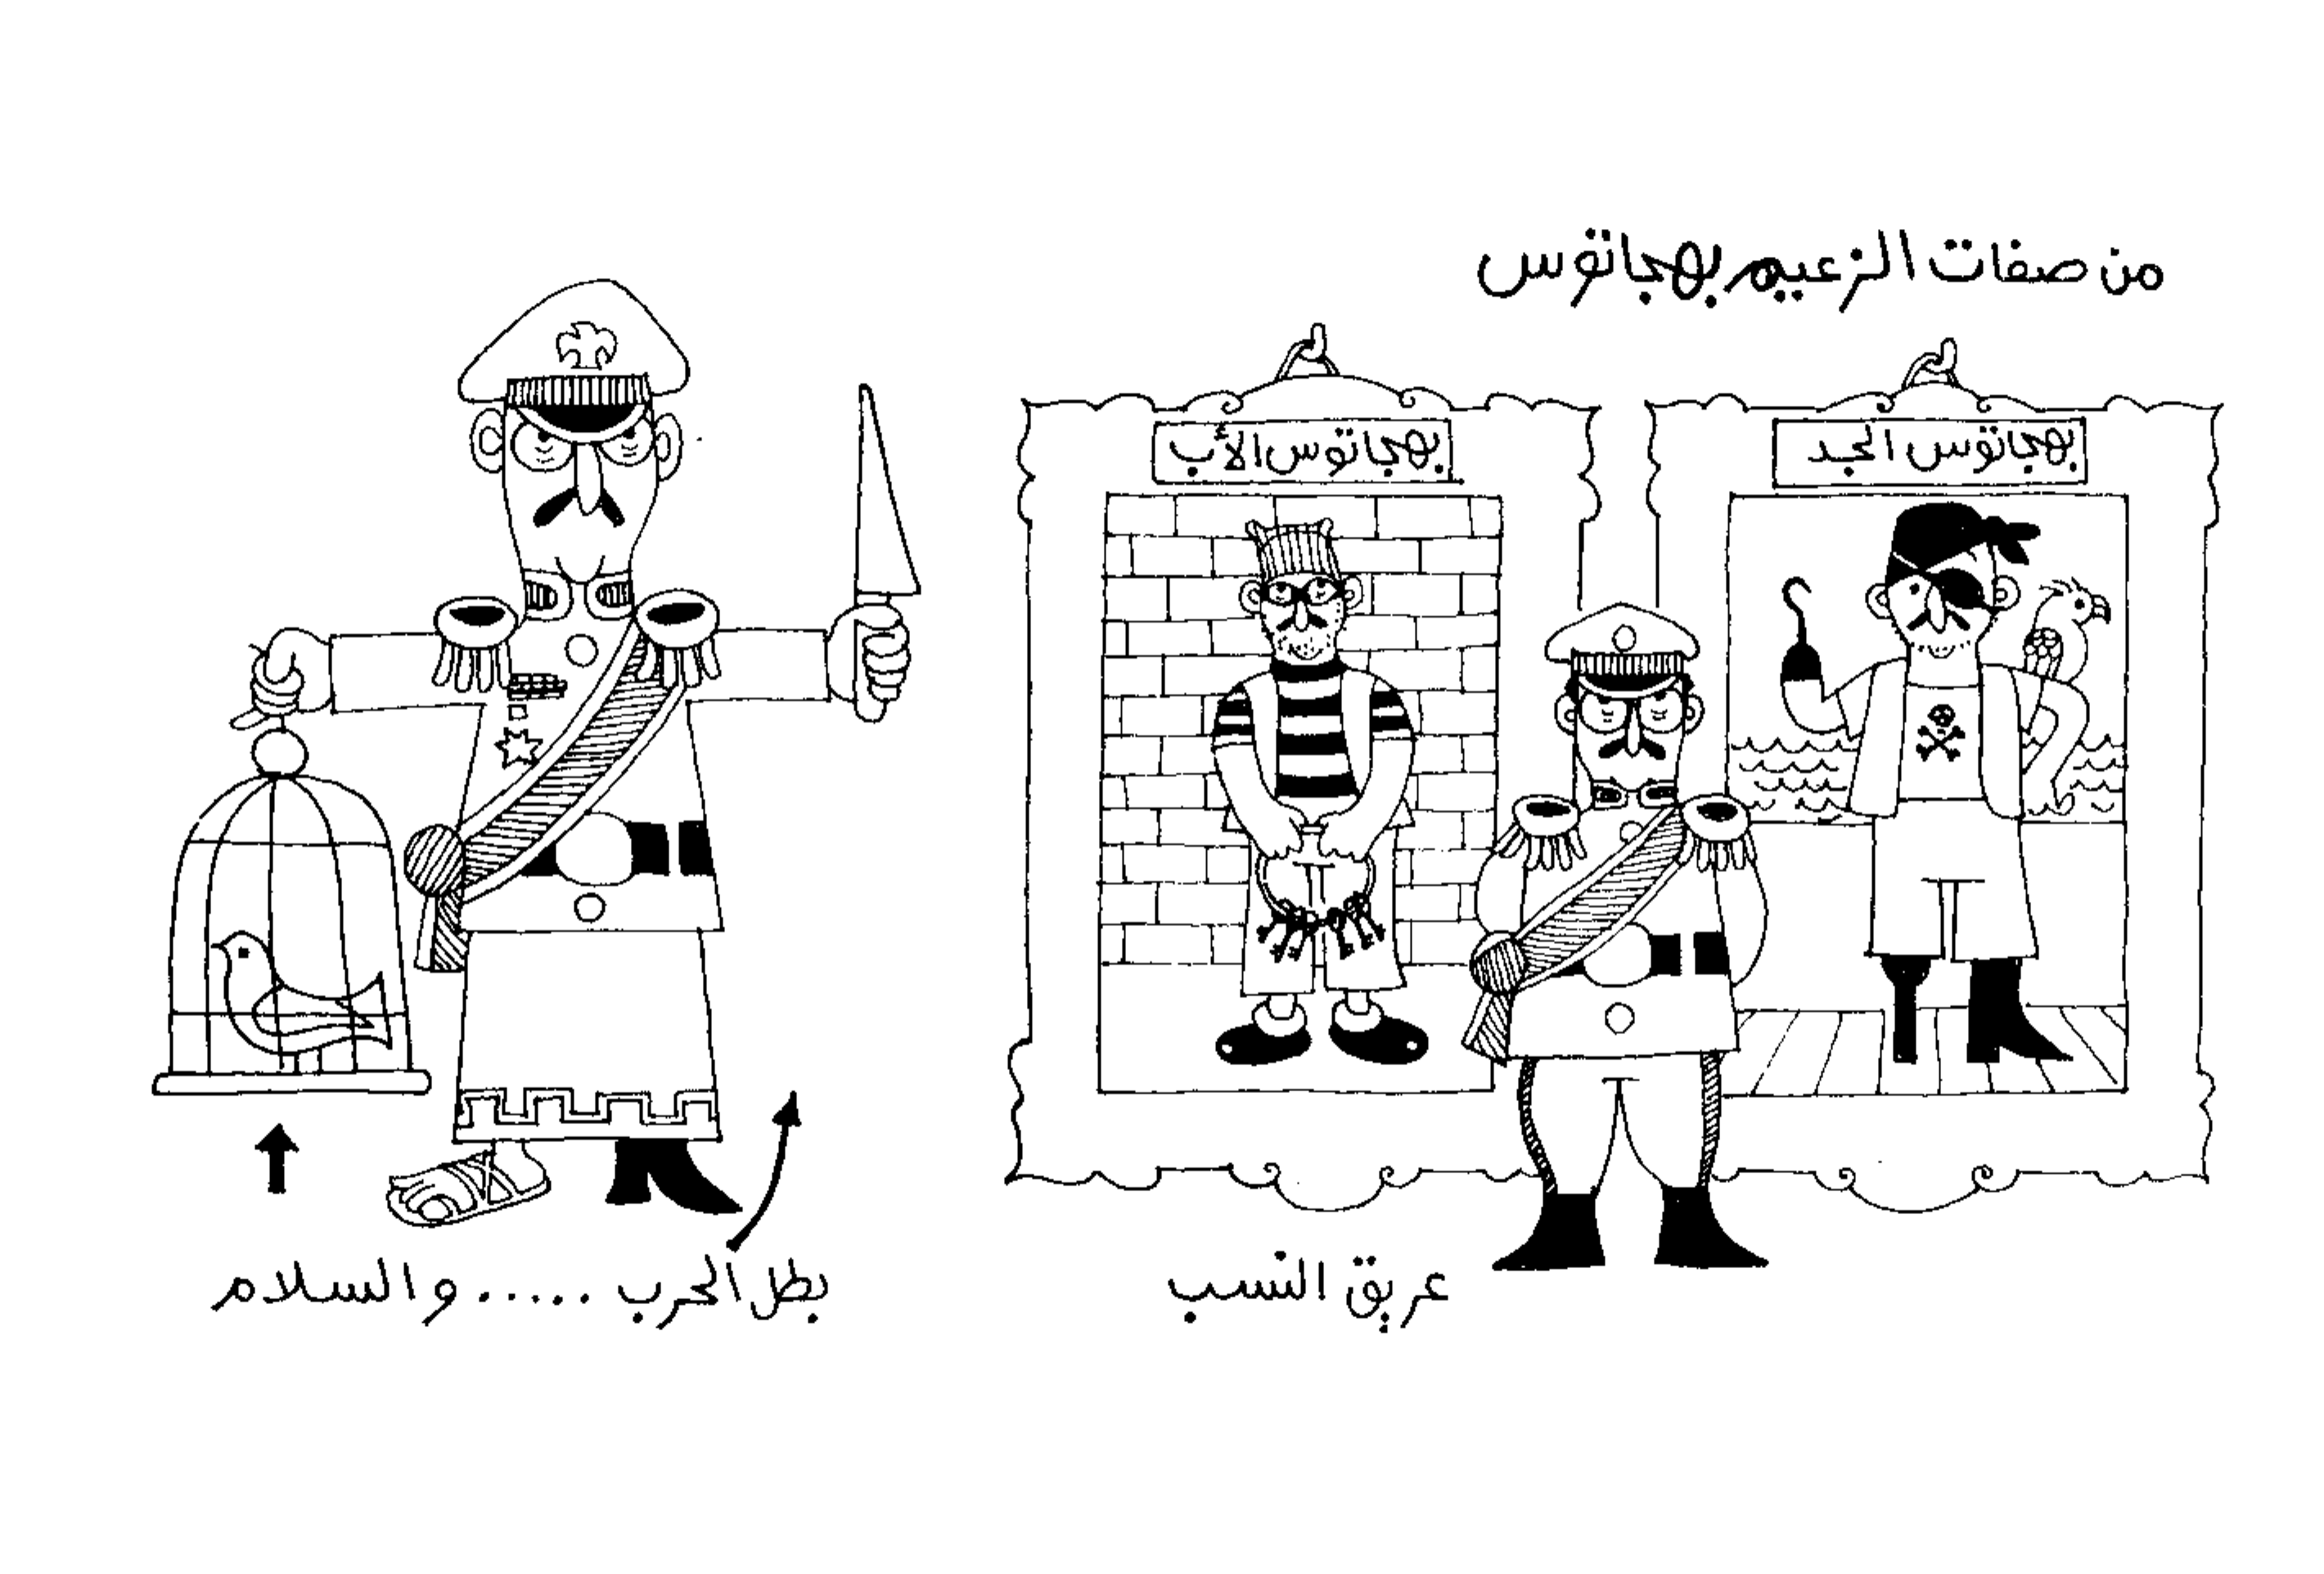 من صفات الزعيم بهجاتوس
بهجاتوس الجد
بهجاتوس الأب
عريق النسب
بطل الحرب ..... والسلام